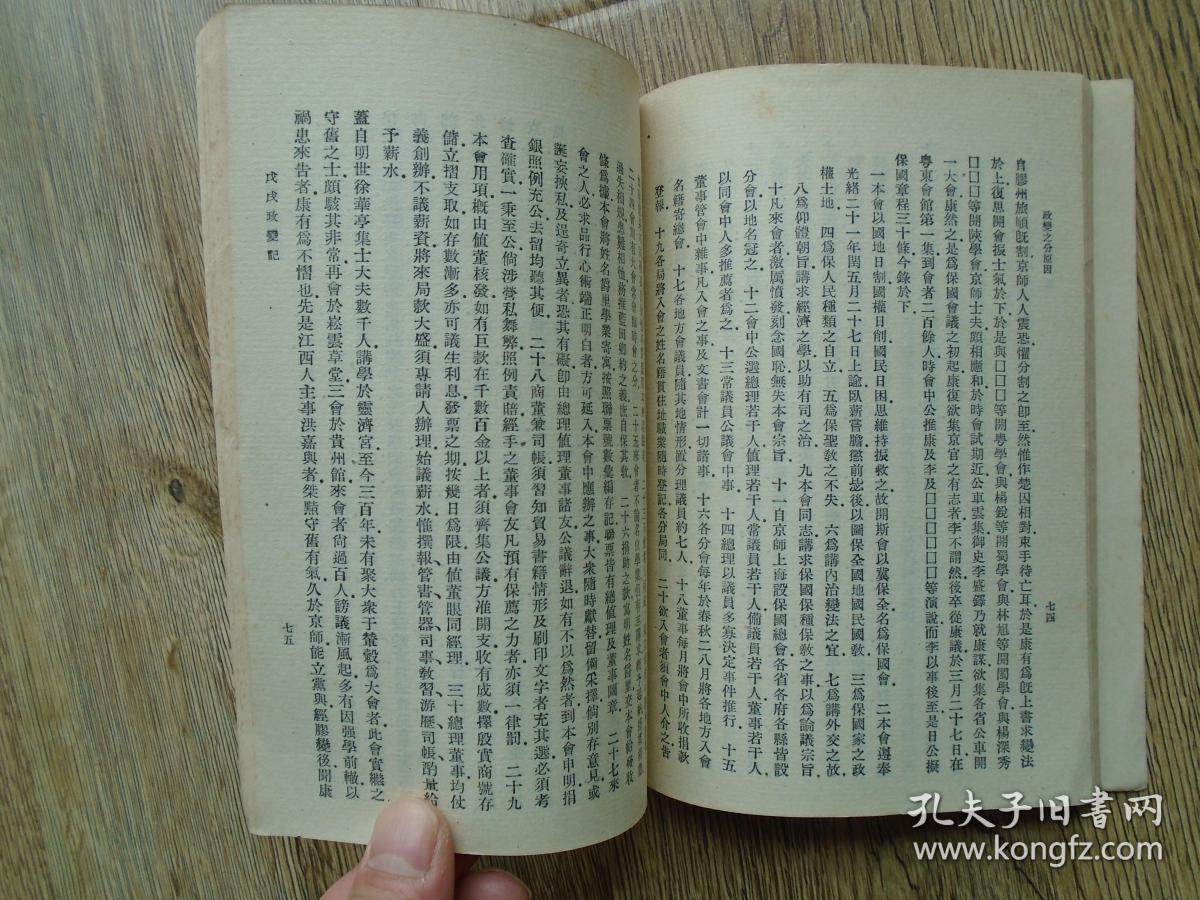 政變之分原因
七四
自膠州旅順旣割京師人人震恐懼分割之卽至然惟作楚囚相對束手待亡耳於是康有爲旣上書求變法
於上復思開會振士氣於下於是與囗囗囗等開粵學會與楊銳等開蜀學會與林旭等開閩學會與楊深秀
囗囗囗等開陝學會京師士夫頗相應和於時會試期近公車雲集御史李盛鐸乃就康謀欲集各省公車開
一大會康然之是爲保國會議之初起康復欲集京官之有志者李不謂然後卒從康議於三月二十七日在
粵東會館第一集到會者二百餘人時會中公推康及李及囗囗囗囗囗等演說而李以事後至是日公擬
保國章程三十條今錄於下
一本會以國地日割國權日削國民日困思維持振救之故開斯會以冀保全名爲保國會 二本會遵奉
光緒二十一年閏五月二十七日上諭臥薪嘗膽懲前毖後以圖保全國地國民國敎 三爲保國家之政
權土地 四爲保人民種類之自立 五爲保聖敎之不失 六爲講內治變法之宜 七爲講外交之故
八爲仰體朝旨講求經濟之學以助有司之治 九本會同志講求保國保種保敎之事以爲論議宗旨
十凡來會者激厲憤發刻念國恥無失本會宗旨 十一自京師上海設保國總會各省各府各縣皆設
分會以地名冠之 十二會中公選總理若干人値理若干人常議員若干人備議員若干人董事若干人
以同會中人多推薦者爲之 十三常議員公議會中事 十四總理以議員多寡決定事件推行 十五
董事管會中雜事凡入會之事及文書會計一切諸事 十六各分會每年於春秋二八月將各地方入會
名籍寄總會 十七各地方會議員隨其地情形置分理議員約七人 十八董事每月將會中所收捐款
登報 十九各局將入會之姓名籍貫住址職業隨時登記各分局同 二十欲入會者須會中人介之告
二十四會期有大會常會臨時會之分 二十五來會者不論名位學業
過失相規患難相恤務推藍田鄉約之義庶自保其敎 二十六捐助之款寫明姓名爵里交本會給發收
條爲據本會將姓名爵里學業寄寓按照聯票號數彙編存記聯票皆有總値理及董事圖章 二十七來
會之人必求品行心術端正明白者方可延入本會中應辦之事大衆隨時獻替留備采擇倘別存意見或
誕妄挾私及逞奇立異者恐其有礙卽由總理値理董事諸友公議辭退如有不以爲然者到本會申明捐
銀照例充公去留均聽其便 二十八商董兼司帳須習知貿易書籍情形及刷印文字者充其選必須考
査確實一秉至公倘涉營私舞弊照例責賠經手之董事會友凡預有保薦之力者亦須一律罰 二十九
本會用項概由値董核發如有巨款在千數百金以上者須齊集公議方准開支收有成數擇殷實商號存
儲立摺支取如存數漸多亦可議生利息發票之期按幾日爲限由値董眼同經理 三十總理董事均仗
義創辦不議薪資將來局款大盛須專請人辦理始議薪水惟撰報管書管器司事敎習游歷司帳酌量給
予薪水
蓋自明世徐華亭集士夫夫數千人講學於靈濟宮至今三百年未有聚大衆于輦轂爲大會者此會實繼之
守舊之士頗駭其非常再會於崧雲草堂三會於貴州館來會者尙過百人謗議漸風起多有因强學前轍以
禍患來告者康有爲不慴也先是江西人主事洪嘉與者桀黠守舊有氣久於京師能立黨與經膠變後聞康
戊戌政變記
七五
孔夫子旧书网
www.kongfz.com